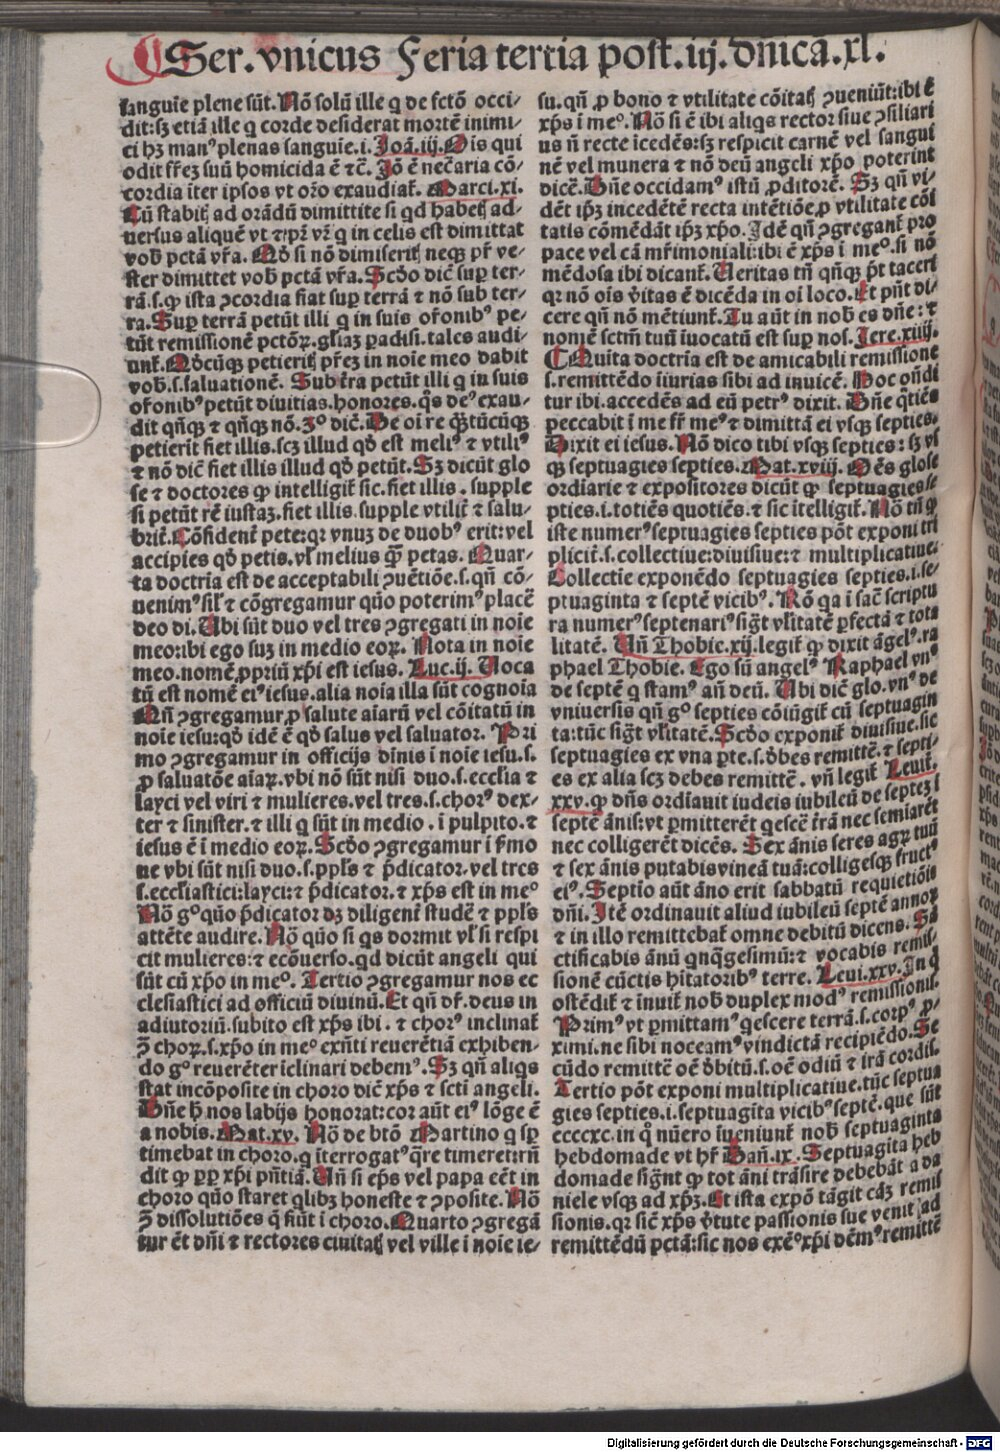 Ser. vnicus Feria tertia post .iij. dñica .xl.
sanguĩe plene sũt. Nõ solũ ille q de fctõ occi/
dit: sꝫ etiã ille q corde desiderat mortẽ inimi/
ci hꝫ man⁹ plenas sanguĩe. i. Joã. iij. Ois qui
odit fr̃eꝫ suũ homicida ẽ ⁊c̃. Jõ ẽ nec̃aria cõ/
cordia ĩter ipsos vt or̃o exaudiat᷑. Marci. xi.
Cũ stabitꝭ ad orãdũ dimittite si qd habetꝭ ad/
uersus aliquẽ vt ⁊ pr̃ vr̃ q in celis est dimittat
vob pctã vr̃a. Qđ si nõ dimiseritꝭ neqꝫ pr̃ ve/
ster dimittet vob pctã vr̃a. Scđo dic̃ sup ter/
rã. s. ꝙ ista ꝯcordia fiat sup terrã ⁊ nõ sub ter/
ra. Sup terrã petũt illi q in suis or̃onib⁹ pe/
tũt remissionẽ pctõꝝ. gl̃iaꝫ ꝑadisi. tales audi/
unt᷑. Qđcũqꝫ petieritꝭ pr̃eꝫ in noĩe meo dabit
vob. s. saluationẽ. Sub tr̃a petũt illi q in suis
or̃onib⁹ petũt diuitias. honores. q̃s de⁹ exau/
dit qñqꝫ ⁊ qñqꝫ nõ. Jº dic̃. De oĩ re q̃tũcũqꝫ
petierit fiet illis. scꝫ illud qđ est meli⁹ ⁊ vtili⁹
⁊ nõ dic̃ fiet illis illud qđ petũt. Sꝫ dicũt glo
se ⁊ doctores ꝙ intelligit᷑ sic. fiet illis. supple
si petũt rẽ iustaꝫ. fiet illis. supple vtilit̃ ⁊ salu/
brit̃. Cõfident̃ pete: qꝛ vnuꝫ de duob⁹ erit: vel
accipies qđ petis. vl̃ melius q̃ꝫ petas. Quar/
ta doctrĩa est de acceptabili ꝯuẽtiõe. s. qñ cõ/
uenim⁹ sil̃ ⁊ cõgregamur qũo poterim⁹ placẽ
deo di. Ubi sũt duo vel tres ꝯgregati in noĩe
meo: ibi ego suꝫ in medio eoꝝ. Nota in noĩe
meo. nomẽ ꝓpriũ xp̃i est iesus. Luc. ij. Uoca
tũ est nomẽ ei⁹ iesus. alia noĩa illa sũt cognoĩa
Qñ ꝯgregamur ꝓ salute aĩarũ vel cõitatũ in
noĩe iesu: qđ idẽ ẽ qđ salus vel saluator. Pri
mo ꝯgregamur in officijs diuĩnis i noĩe iesu. s.
ꝓ saluatõe aĩaꝝ. vbi nõ sũt nisi duo. s. ecclĩa ⁊
layci vel viri ⁊ mulieres. vel tres. s. chor⁹ dex/
ter ⁊ sinister. ⁊ illi q sũt in medio. i pulpito. ⁊
iesus ẽ i medio eoꝝ. Scđo ꝯgregamur i ẜmo
ne vbi sũt nisi duo. s. ppl̃s ⁊ p̃dicator. vel tres
s. ecclesiastici: layci: ⁊ p̃dicator. ⁊ xp̃s est in meº
Nõ gº qũo p̃dicator dꝫ diligent̃ studẽ ⁊ ppl̃s
attẽte audire. Nõ qũo si qs dormit vl̃ si respi
cit mulieres: ⁊ ecõuerso. qd dicũt angeli qui
sũt cũ xp̃o in meº. Tertio ꝯgregamur nos ec
clesiastici ad officiũ diuinũ. Et qñ df̃. deus in
adiutoriũ. subito est xp̃s ibi. ⁊ chor⁹ inclinat᷑
ꝯ̃ choꝝ. s. xp̃o in meº exñti reuerẽtiã exhiben/
do gº reuerẽter ĩclinari debem⁹. Sꝫ qñ aliqs
stat incõposite in choro dic̃ xp̃s ⁊ scti angeli.
Dñe hi nos labijs honorat: cor aũt ei⁹ lõge ẽ
a nobis. Mat. xv. Nõ de btõ Martino q sp̃
timebat in choro. q ĩterrogat⁹ q̃re timeret: rñ
dit ꝙ ꝓꝑ xp̃i pñtiã. Uñ si ep̃s vel papa eẽt in
choro qũo staret qlibꝫ honeste ⁊ ꝯposite. Nõ
ꝯ̃ dissolutiões q̃ fiũt i choro. Quarto ꝯgregã
tur ẽt dñi ⁊ rectores ciuitatꝭ vel ville i noĩe ie/
su. qñ ꝓ bono ⁊ vtilitate cõitatꝭ ꝯueniũt: ibi ẽ
xp̃s i meº. Nõ si ẽ ibi aliqs rector siue ꝯsiliari
us ñ recte ĩcedẽs: sꝫ respicit carnẽ vel sangui
nẽ vel munera ⁊ nõ deũ angeli xp̃o poterint
dicẽ. Dñe occidam⁹ istũ ꝓditorẽ. Sꝫ qñ vi/
dẽt ip̃ꝫ incedẽtẽ recta intẽtiõe ꝓ vtilitate cõi
tatis cõmẽdãt ip̃ꝫ xp̃o. Jdẽ qñ ꝯgregant᷑ pro
pace vel cã mr̃imoniali: ibi ẽ xp̃s i meº. si nõ
mẽdosa ibi dicant᷑. Ueritas tñ qñqꝫ p̃t taceri
qꝛ nõ oĩs v̾itas ẽ dicẽda in oĩ loco. Et pñt di/
cere qñ nõ mẽtiunt᷑. Tu aũt in nob es dñe: ⁊
nomẽ sctm̃ tuũ ĩuocatũ est sup nos. Jere. xiiij.
Quita doctrĩa est de amicabili remissione
s. remittẽdo ĩiurias sibi ad inuicẽ. Hoc oñdi
tur ibi. accedẽs ad eũ petr⁹ dixit. Dñe q̃tiẽs
peccabit i me fr̃ me⁹ ⁊ dimittã ei vsqꝫ septies.
Dixit ei iesus. Nõ dico tibi vsqꝫ septies: sꝫ vs
qꝫ septuagies septies. Mat. xviij. Oẽs glose
ordĩarie ⁊ expositores dicũt ꝙ septuagies se
pties. i. totiẽs quotiẽs. ⁊ sic ĩtelligit᷑. Nõ tñ ꝙ
iste numer⁹ septuagies septies põt exponi tri
plicit̃. s. collectiue: diuisiue: ⁊ multiplicatiue.
Collectie exponẽdo septuagies septies. i. se/
ptuaginta ⁊ septẽ vicib⁹. Rõ qa i sac̃ scriptu
ra numer⁹ septenari⁹ sig̃t vl̃itatẽ ꝑfectã ⁊ tota
litatẽ. Uñ Thobie. xij. legit᷑ ꝙ dixit ãgel⁹. ra
phael Thobie. Ego suꝫ angel⁹ Raphael vn⁹
de septẽ q stam⁹ añ deũ. Ubi dic̃ glo. vn⁹ de
vniuersis qñ gº septies cõiũgit᷑ cũ septuagin
ta: tũc sig̃t vl̃itatẽ. Scđo exponit᷑ diuisiue. sic
septuagies ex vna ꝑte. s. đbes remittẽ. ⁊ septi/
es ex alia scꝫ debes remittẽ. vñ legit᷑ Leuit̃.
xxv. ꝙ dñs ordĩauit iudeis iubileũ de septeꝫ i
septẽ ãnis: vt ꝑmitterẽt qescẽ tr̃ã nec semĩarẽt
nec colligerẽt dicẽs. Sex ãnis seres agrꝝ tuũ
⁊ sex ãnis putabis vineã tuã: colligesqꝫ fruct⁹
ei⁹. Septĩo aũt ãno erit sabbatũ requietiõis
dñi. Jtẽ ordinauit aliud iubileũ septẽ annoꝝ
⁊ in illo remittebat᷑ omne debitũ dicens. Sã
ctificabis ãnũ qnqgesimũ: ⁊ vocabis remis/
sionẽ cũctis hitatorib⁹ terre. Leui. xxv. Jn q
ostẽdit᷑ ⁊ ĩnuit᷑ nob duplex mod⁹ remissionis.
Prim⁹ vt ꝑmittam⁹ qescere terrã. s. corp⁹ ꝓ/
ximi. ne sibi noceam⁹ vindictã recipiẽdo. Se
cũdo remittẽ oẽ đbitũ. s. oẽ odiũ ⁊ irã cordis.
Tertio põt exponi multiplicatiue. tũc septua
gies septies. i. septuagĩta vicib⁹ septẽ. que sũt
ccccxc. in q̊ nũero ĩueniunt᷑ nob septuaginta
hebdomade vt hr̃ Dañ. ix. Septuagĩta heb
domade sig̃nt ꝙ tot ãni trãsire debebãt a da
niele vsqꝫ ad xp̃ꝫ. Et ista expõ tãgit cãꝫ remis
sionis. qꝛ sic̃ xp̃s v̾tute passionis sue venit ad
remittẽdũ pctã: sic nos exẽº xp̃i dẽm⁹ remittẽ
Digitalisierung gefördert durch die Deutsche Forschungsgemeinschaft - DFG